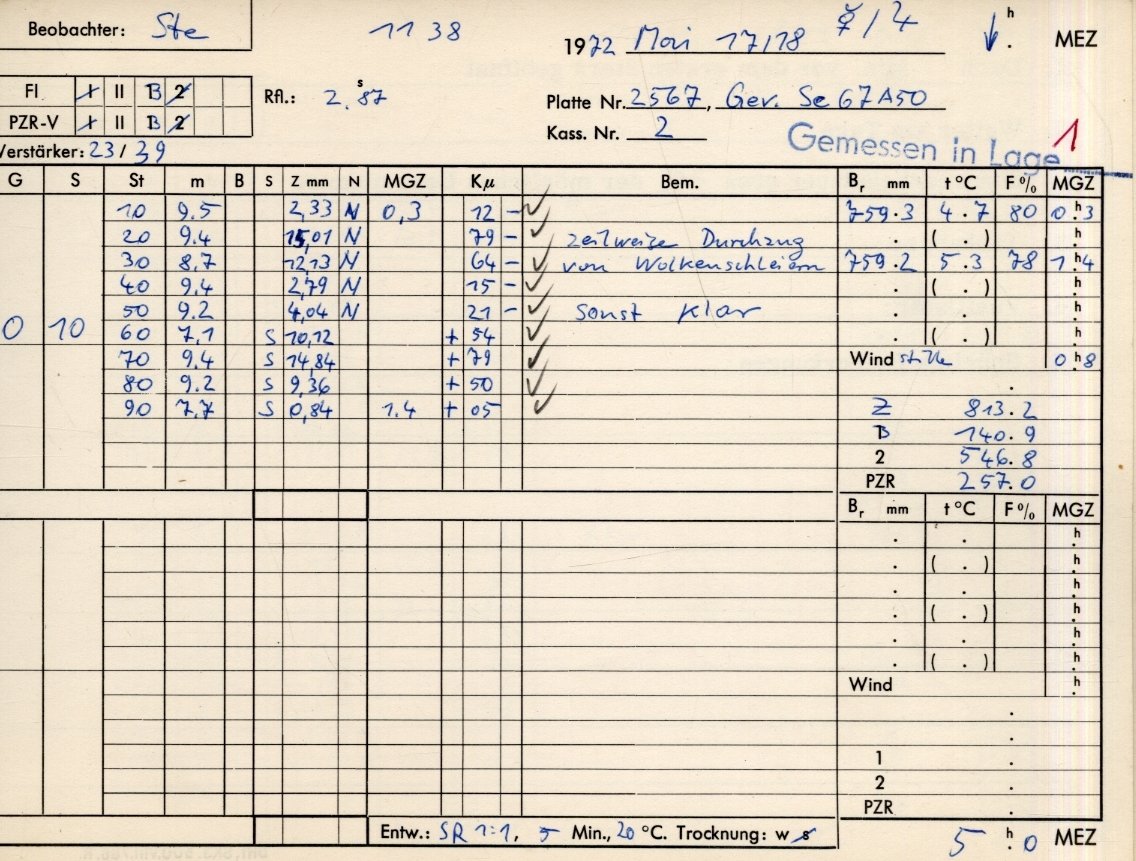 Beobachter: Ste
11 38
1972 Mai 17/18 ☿/♃ ↓ h . MEZ
FI I II B 2
PZR-V I II B 2
Rfl.: 2.s87
Platte Nr. 2567, Gev. Se 67A50
Kass. Nr. 2
Verstärker: 23/39
Gemessen in Lage 1
G S St m B S Z mm N MGZ Kμ Bem. Br mm t °C F % MGZ
10 9.5 2,33 N 0,3 12 – ✓ 759.3 4.7 80 0h.3
20 9.4 15,01 N 79 – ✓ zeitweise Durchzug . ( . ) h.
30 8.7 12,13 N 64 – ✓ von Wolkenschleiern 759.2 5.3 78 1h.4
40 9.4 2,79 N 15 – ✓ . ( . ) h.
50 9.2 4,04 N 21 – ✓ sonst klar . . h.
0 10 60 7,1 S 10,12 + 54 ✓ . ( . ) h.
70 9.4 S 14,84 + 79 ✓ Wind stille 0h.8
80 9.2 S 9,36 + 50 ✓ .
90 7.7 S 0,84 1.4 + 05 ✓ Z 813.2
B 140.9
2 546.8
PZR 257.0
Br mm t °C F % MGZ
. . h.
. ( . ) h.
. . h.
. ( . ) h.
. . h.
. ( . ) h.
Wind h.
.
.
1 .
2 .
PZR .
Entw.: SR 1:1, 5 Min., 20 °C. Trocknung: w s
5 h. 0 MEZ